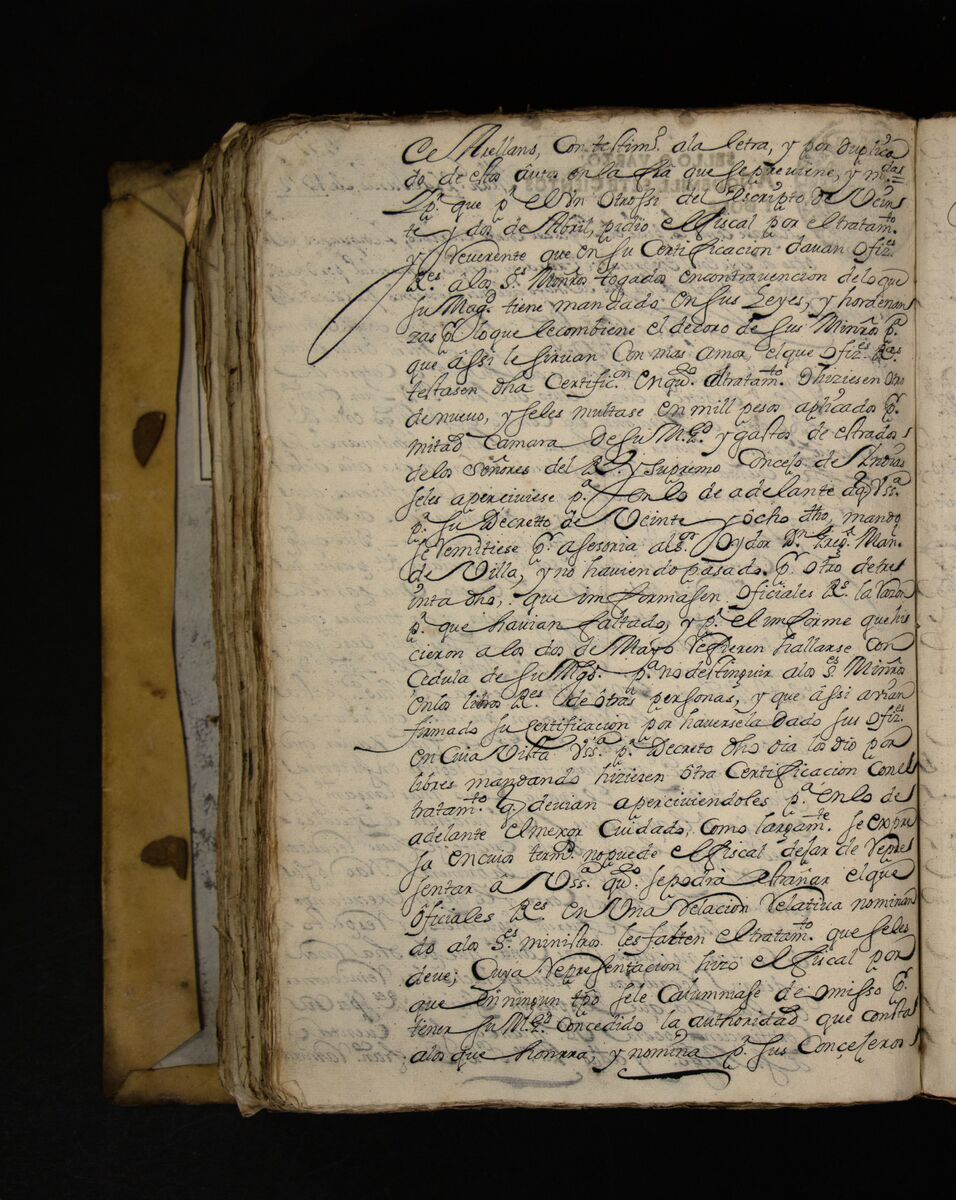 de Arellano, Con testimº. ala letra, y por duplica
do de estos âutos en la fha que se previene, y mdas
Lo pr. que pr. el Vn Otrossi del Escripto de Vein
te y dos de Abril, pidio el fiscal por el tratamto
y Reverente que en su Certificacion davan ofizes
Res. alos Ses. Minros togados encontravencion deloque
su Magd. tiene mandado en sus Leyes, y hordenan
zas pr. loque lecombiene el decoro de sus Minros pa.
que âssi le sirvan Con mas amor, el que ofizes Res
testasen dha Certificon. en qto. el tratamto. O hiziesen otro
de nuevo, y seles multase en mill pesos aplicados pr.
mitad Camara de su Mgd. y gastos de estrados
delos señores del Rl. y supremo Concejo de Yndias
seles aperciviese pa. en lo de adelante dq Vssa
pr. su Decretto de Veinte y ôcho dho, mandô
se remitiese pr. asesoria als. Oydor Dn. Greg. Man.
de Villa, y no haviendo pasado. pr. otro de tre
inta dho, que imformasen Oficiales Rs. la razon
pr. que havian faltado, y pr. el imforme que hi
cieron alos dos de Mayo refieren hallarse con
Cedula de su Mgd. pa. no destinguir alos Ses. Minros
enlos libros Res. de ôtras personas, y que âssi avian
firmado su certificacion por haversela dado sus ofizs.
en Cuia Vista Vssa. pr. Decreto dho dia los dio por
libres mandando hizieren ôtra Certificacion Con el
tratamto. q. devian aperciviendoles pa. enlo de
adelante el mexor Cuidado, Como largamte. se expre
sa en cuios termos. no puede el fiscal dejar de repre
sentar â Vssa. qto. sepodrâ estrañar el que
ôficiales Res. en Una relacion relativa nominan
do alos Ses. ministros les falten el tratamto. que seles
deve; Cuya representacion hizo el fiscal por
que en ningun tpo sele Calumniase de omisso pr.
tener su Mgd. Concedido la authoridad que consta
alos que honrra, y nomina pr. sus Conçejeros